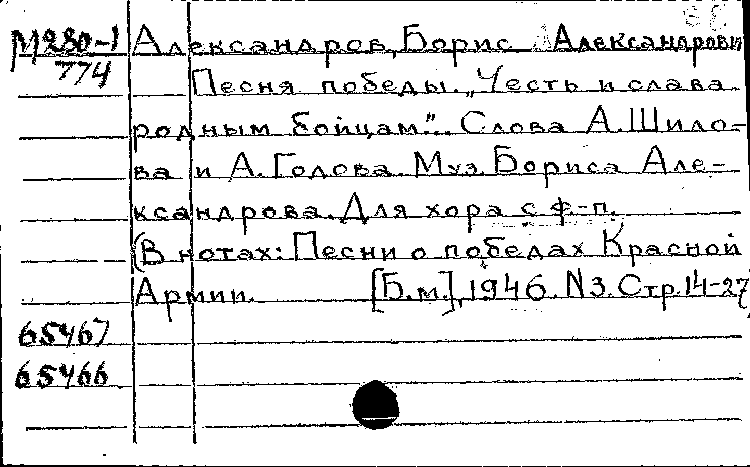 М280-1 Александров, Борис Александрови
774 Песня победы. „Честь и слава
родным бойцам". Слова А. Шило-
ва и А. Голова. Муз. Бориса Але-
ксандрова. Для хора с ф-п.
(В нотах: Песни о победах Красной
Армии. [Б.м.], 1946. N3. Стр. 14-27
65467
65466